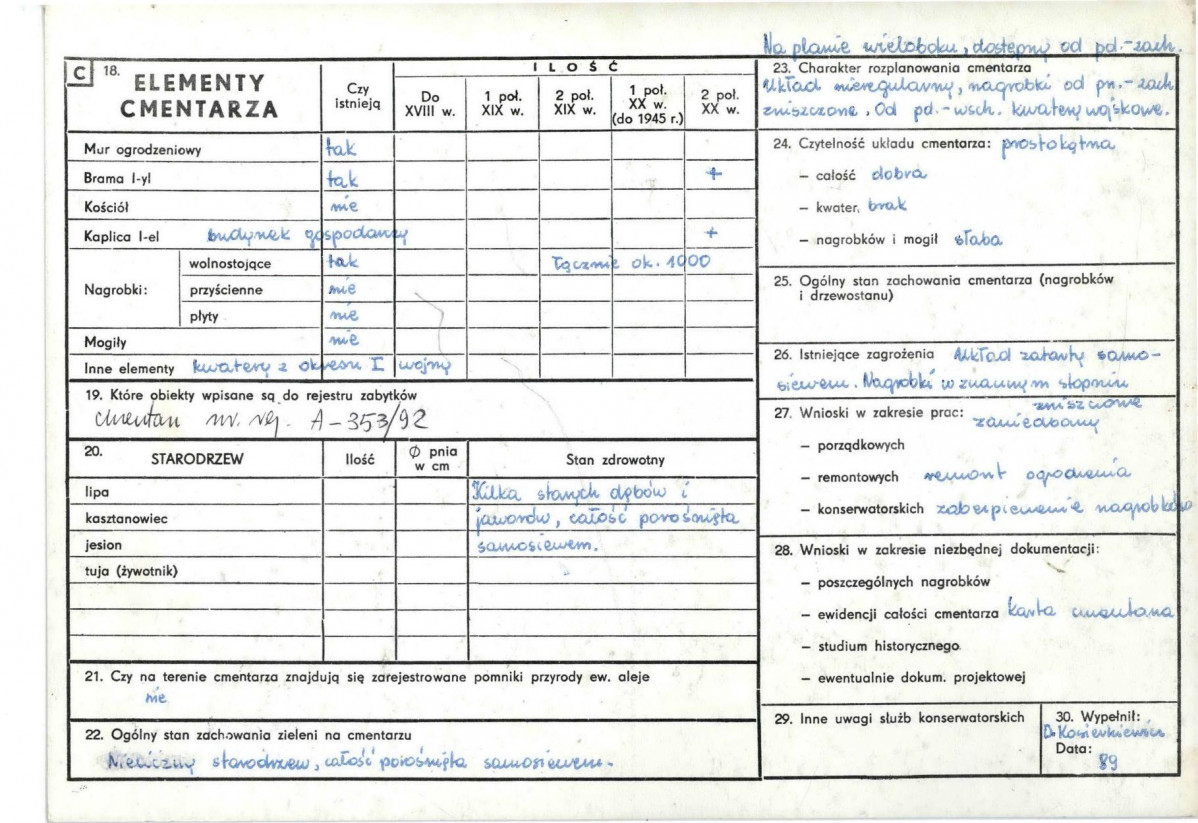 Na planie wieloboku, dostępny od pd.-zach.
C 18. ELEMENTY CMENTARZA
Czy istnieją
ILOŚĆ
Do XVIII w.
1 poł. XIX w.
2 poł. XIX w.
1 poł. XX w. (do 1945 r.)
2 poł. XX w.
Mur ogrodzeniowy tak
Brama I-yl tak +
Kościół nie
Kaplica I-el budynek gospodarczy +
Nagrobki:
wolnostojące tak łącznie ok. 1000
przyścienne nie
płyty nie
Mogiły nie
Inne elementy kwatery z okresu I wojny
19. Które obiekty wpisane są do rejestru zabytków
cmentarz nr. rej. A-353/92
20. STARODRZEW
Ilość
Ø pnia w cm
Stan zdrowotny
lipa Kilka starych dębów i
kasztanowiec jaworów, całość porośnięta
jesion samosiewem.
tuja (żywotnik)
21. Czy na terenie cmentarza znajdują się zarejestrowane pomniki przyrody ew. aleje
nie
22. Ogólny stan zachowania zieleni na cmentarzu
Nieliczny starodrzew, całość porośnięta samosiewem.
23. Charakter rozplanowania cmentarza
Układ nieregularny, nagrobki od pn.-zach.
zniszczone. Od pd.-wsch. kwatery wojskowe.
24. Czytelność układu cmentarza: prostokątna
– całość dobra
– kwater, brak
– nagrobków i mogił słaba
25. Ogólny stan zachowania cmentarza (nagrobków
i drzewostanu)
26. Istniejące zagrożenia Układ zatarty samo-
siewem. Nagrobki w znacznym stopniu
zniszczone
27. Wnioski w zakresie prac: zaniedbany
– porządkowych
– remontowych remont ogrodzenia
– konserwatorskich zabezpieczenie nagrobków
28. Wnioski w zakresie niezbędnej dokumentacji:
– poszczególnych nagrobków
– ewidencji całości cmentarza karta cmentarza
– studium historycznego
– ewentualnie dokum. projektowej
29. Inne uwagi służb konserwatorskich
30. Wypełnił:
Data:
89